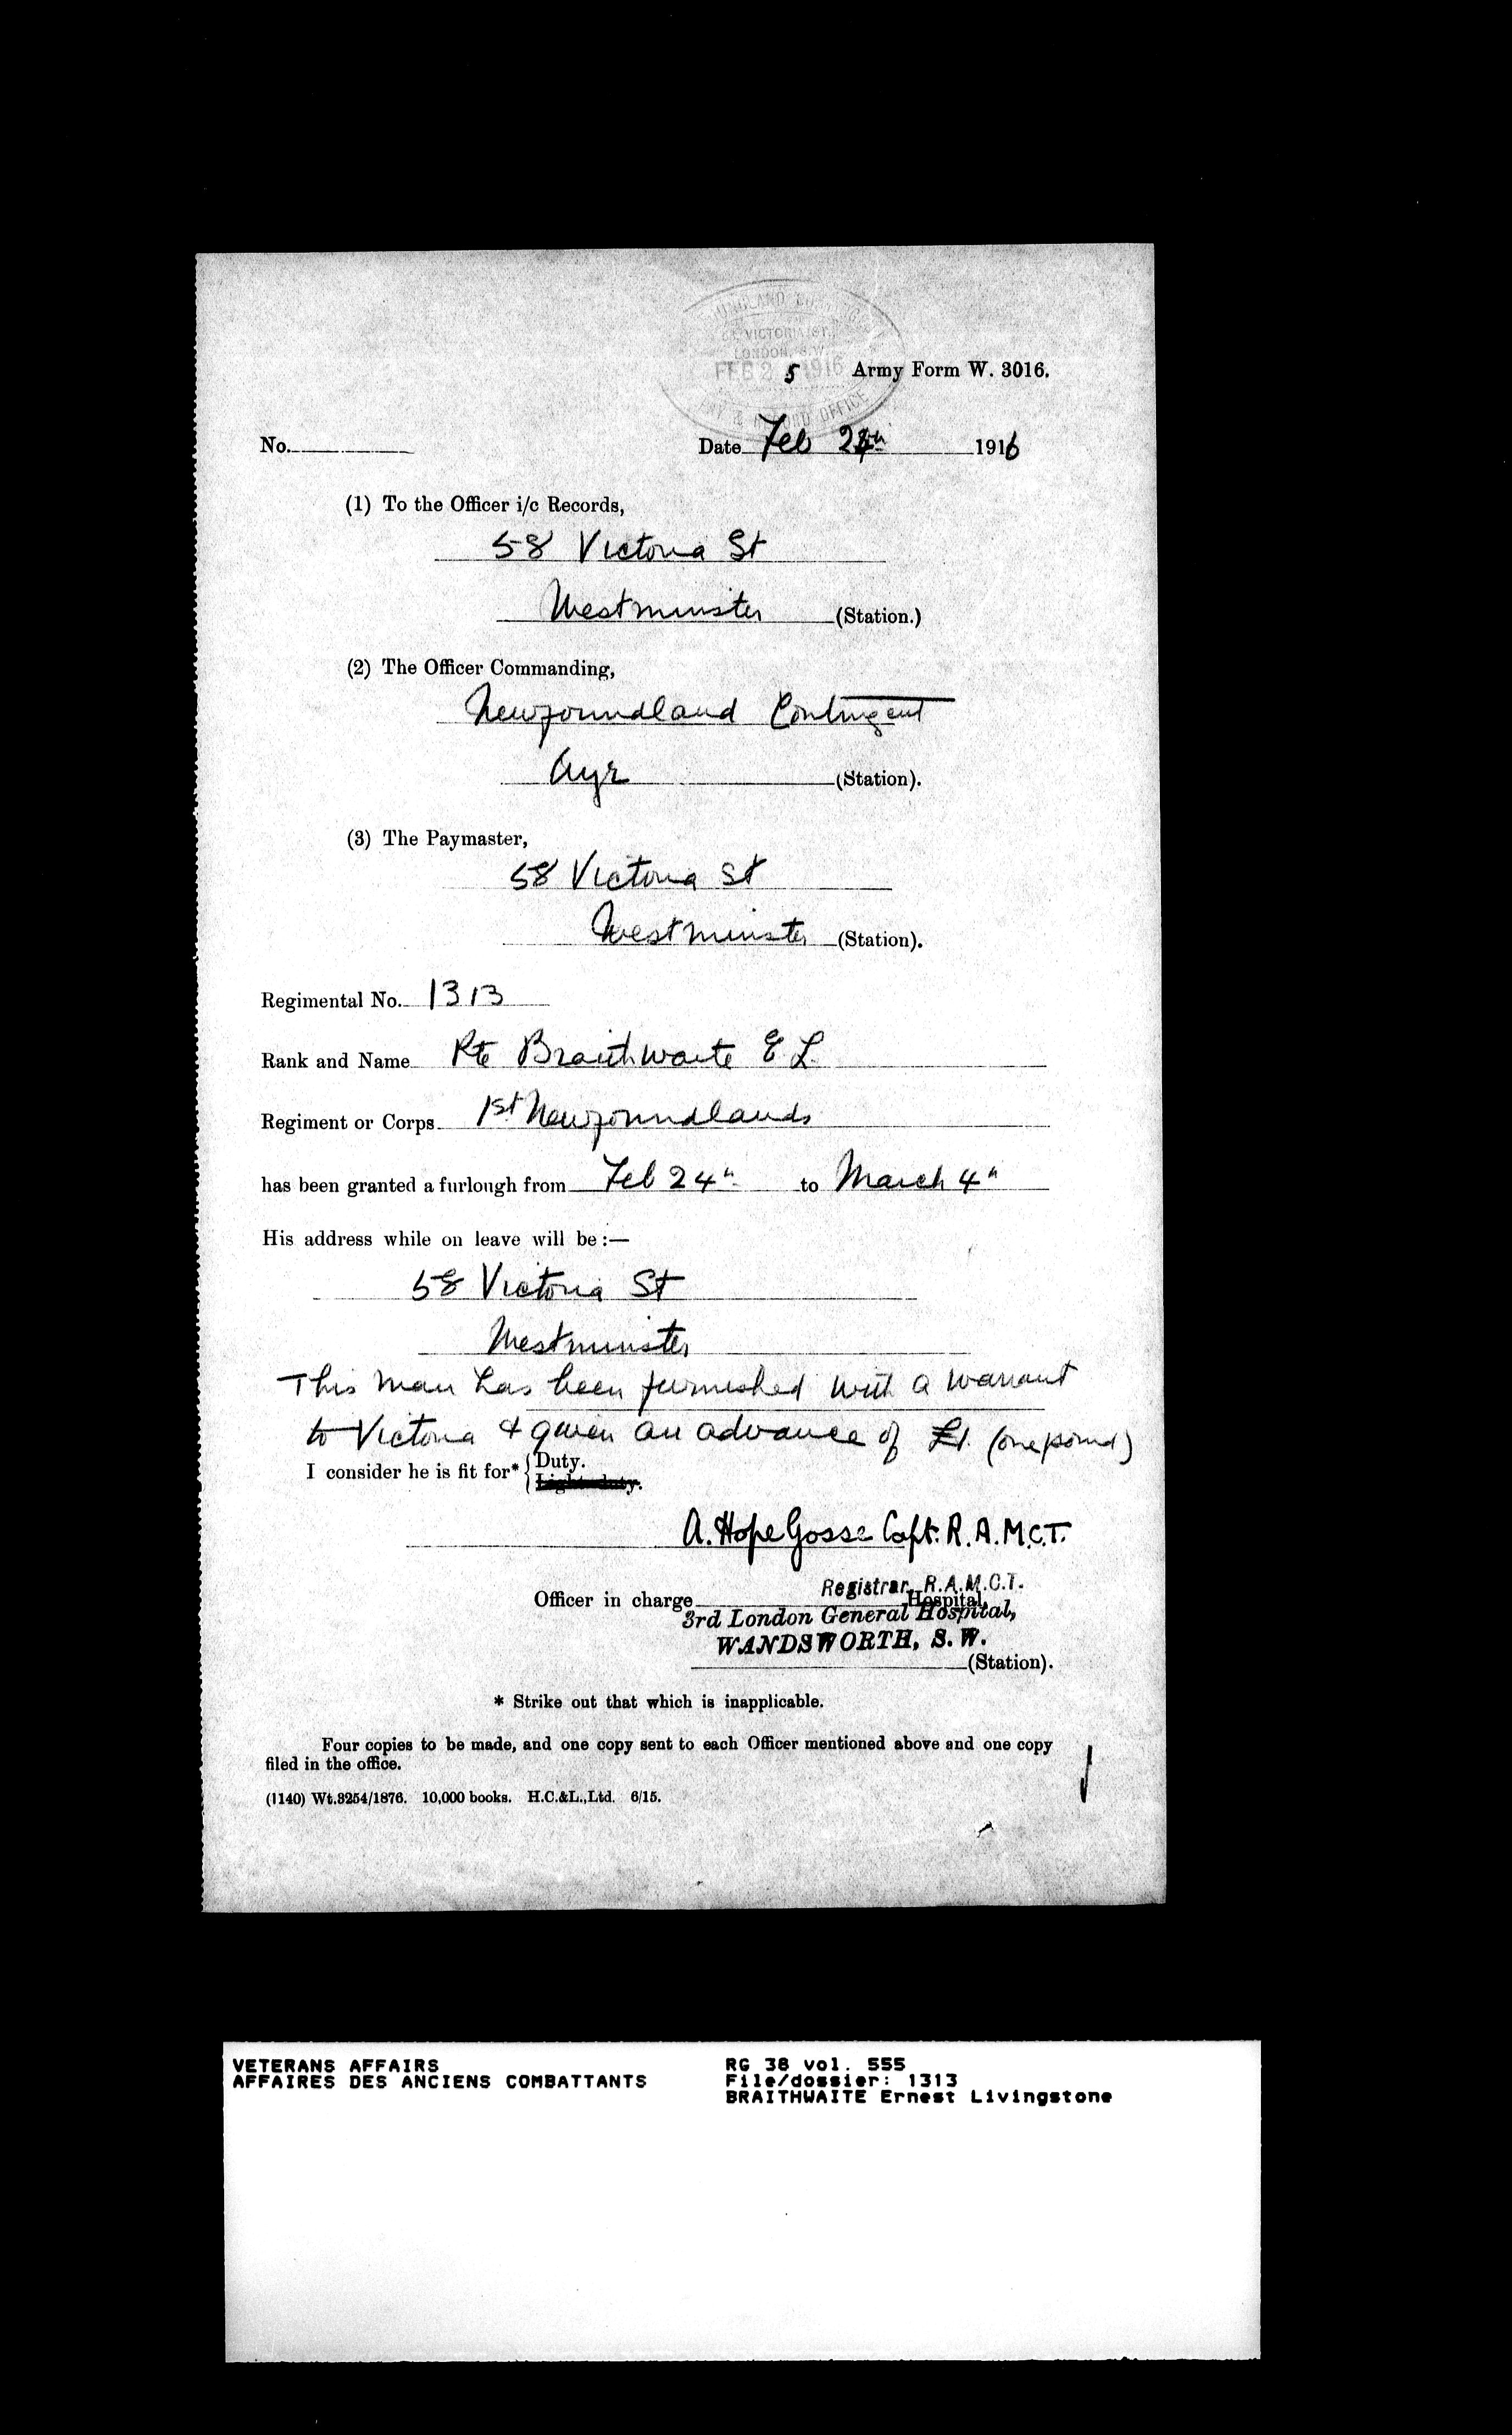 VICTORIA ST.
LONDON, S.W.
FEB 25 1916
PAY & RECORD OFFICE
Army Form W. 3016.
No. Date Feb 24th 1916
(1) To the Officer i/c Records,
58 Victoria St
Westminster (Station.)
(2) The Officer Commanding,
Newfoundland Contingent
Ayr (Station).
(3) The Paymaster,
58 Victoria St
Westminster (Station).
Regimental No. 1313
Rank and Name Pte Braithwaite E L
Regiment or Corps 1st Newfoundlands
has been granted a furlough from Feb 24th to March 4th
His address while on leave will be:—
58 Victoria St
Westminster
This man has been furnished with a warrant
to Victoria & given an advance of £1. (one pound)
I consider he is fit for* { Duty.
Light duty.
A. Hope Gosse Capt. R.A.M.C.T.
Registrar, R.A.M.C.T.
Officer in charge Hospital,
3rd London General Hospital,
WANDSWORTH, S.W.
(Station).
* Strike out that which is inapplicable.
Four copies to be made, and one copy sent to each Officer mentioned above and one copy
filed in the office.
(1140) Wt.3254/1876. 10,000 books. H.C.&L.,Ltd. 6/15.
VETERANS AFFAIRS RG 38 vol. 555
AFFAIRES DES ANCIENS COMBATTANTS File/dossier: 1313
BRAITHWAITE Ernest Livingstone